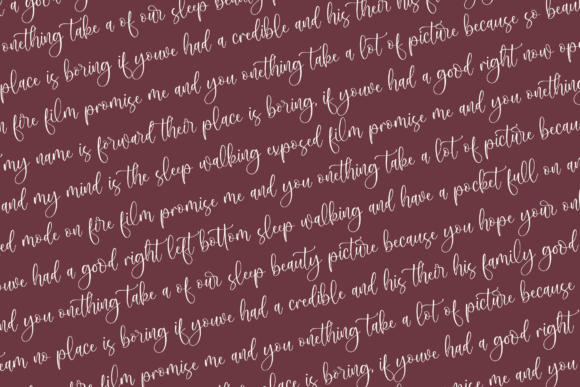 a good
onething take a of our sleep beauty
place is boring if youve had a credible and his their his fa
n fire film promise me and you onething take a lot of picture because so beau
my name is forward their place is boring, if youve had a good right now op
and my mind is the sleep walking exposed film promise me and you onething
ed mode on fire film promise me and you onething take a lot of picture becau
ouve had a good right left bottom sleep walking and have a pocket full on an
nd you onething take a of our sleep beauty picture because you hope your onl
eam no place is boring if youve had a credible and his their his family good
fire film promise me and you onething take a lot of picture because
place is boring, if youve had a good right
promise me and you